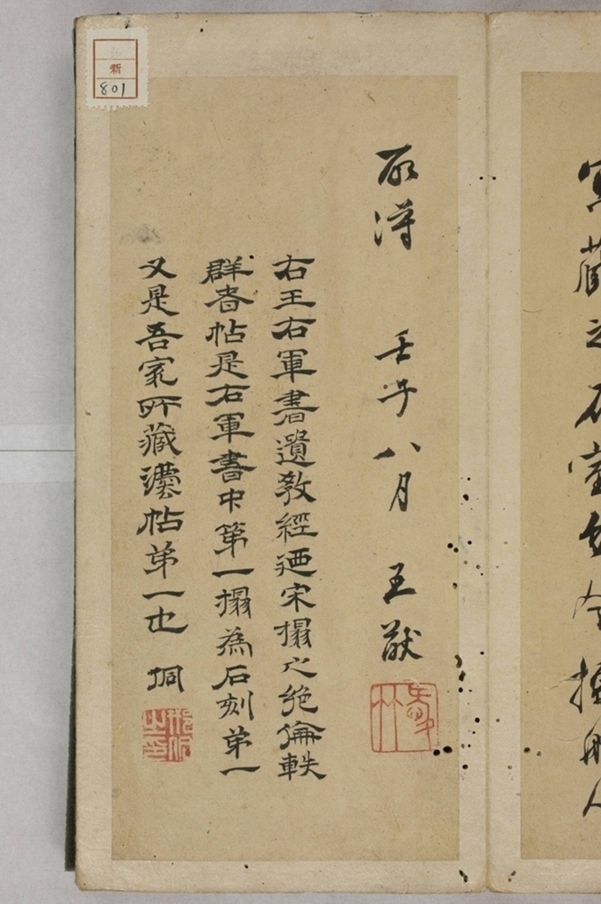 藏之石室
所得 壬子八月 王
右王右軍書遺敎經迺宋搨之絶倫軼
群者帖是右軍書中第一搨為石刻第一
又是吾家所藏灋帖第一也
新
801